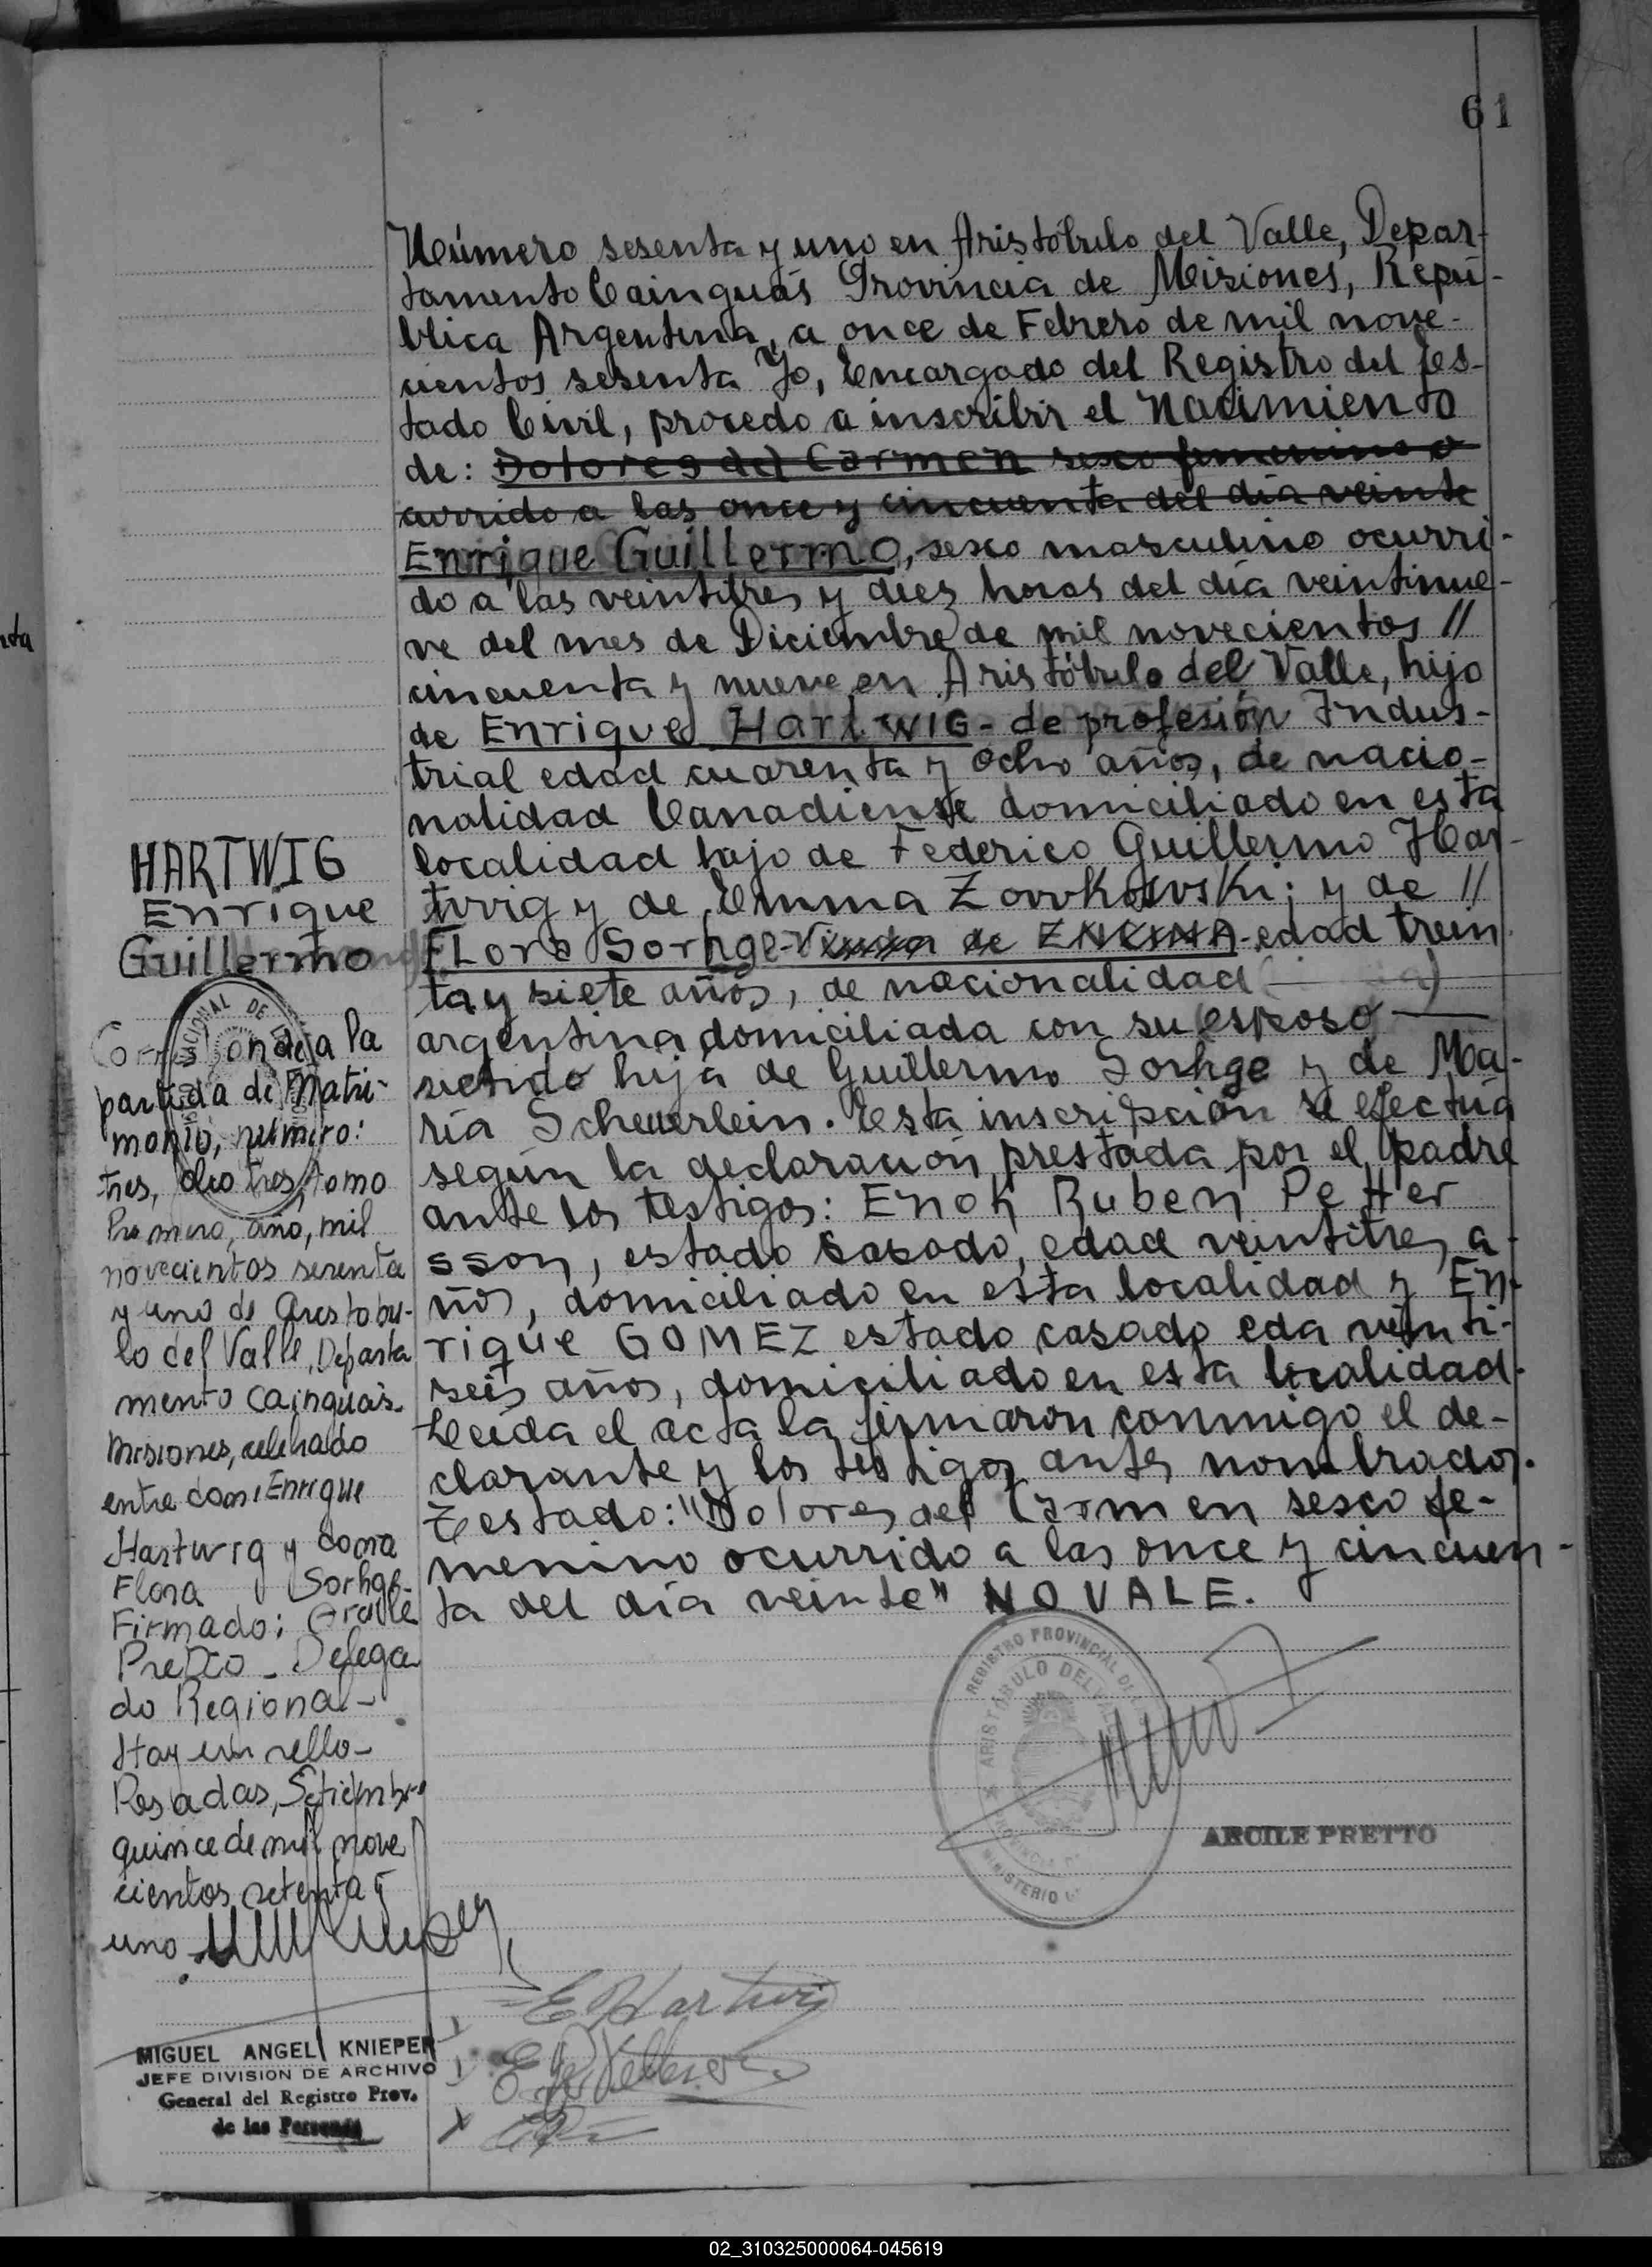 61
Número sesenta y uno en Aristóbulo del Valle, Depar-
tamento Cainguás Provincia de Misiones, Repú-
blica Argentina, a once de Febrero de mil nove-
cientos sesenta Yo, Encargado del Registro del Es-
tado Civil, procedo a inscribir el Nacimiento
de: Dolores del Carmen sexo femenino o
currido a las once y cincuenta del día veinte
Enrique Guillermo, sexo masculino ocurri-
do a las veintitres y diez horas del día veintinue-
ve del mes de Diciembre de mil novecientos //
cincuenta y nueve en Aristóbulo del Valle, hijo
de Enrique HartWIG - de profesión Indus-
trial edad cuarenta y ocho años, de nacio-
nalidad Canadiense domiciliado en esta
localidad hijo de Federico Guillermo Har-
twig y de Emma Zowkowski; y de //
FLora Sorhge - Viuda de - edad trein
ta y siete años, de nacionalidad
argentina domiciliada con su esposo
hija de Guillermo Sorhge y de Ma-
ría Scheuerlein. Esta inscripción se efectúa
según la declaración prestada por el padre
ante los testigos: Enok Ruben Petter
sson, estado casado, edad veintitres a-
ños, domiciliado en esta localidad y En-
rique GOMEZ estado casado eda veinti-
seis años, domiciliado en esta localidad.
Leída el acta la firmaron conmigo el de-
clarante y los testigos antes nombrados.
Testado: "Dolores del Carmen sexo fe-
menino ocurrido a las once y cincuen-
ta del día veinte" NO VALE.
HARTWIG
Enrique
Guillermo
Corresponde a la
partida de Matri-
monio, número:
tres, tomo
Primero, año, mil
novecientos sesenta
y uno de Aristobu-
lo del Valle, Departa
mento Cainguás.
Misiones, celebrado
entre don: Enrique
Hartwig y doña
Flora Sorhge-
Firmado:
Pretto - Delega
do Regional -
Hay un sello -
Posadas, Setiembre
quince de mil nove
cientos setenta y
uno.
MIGUEL ANGEL KNIEPER
JEFE DIVISION DE ARCHIVO
General del Registro Prov.
de las Personas
REGISTRO PROVINCIAL DE
ARISTÓBULO DEL VALLE
MINISTERIO
ARCILE PRETTO
E Hartwig
02_310325000064-045619